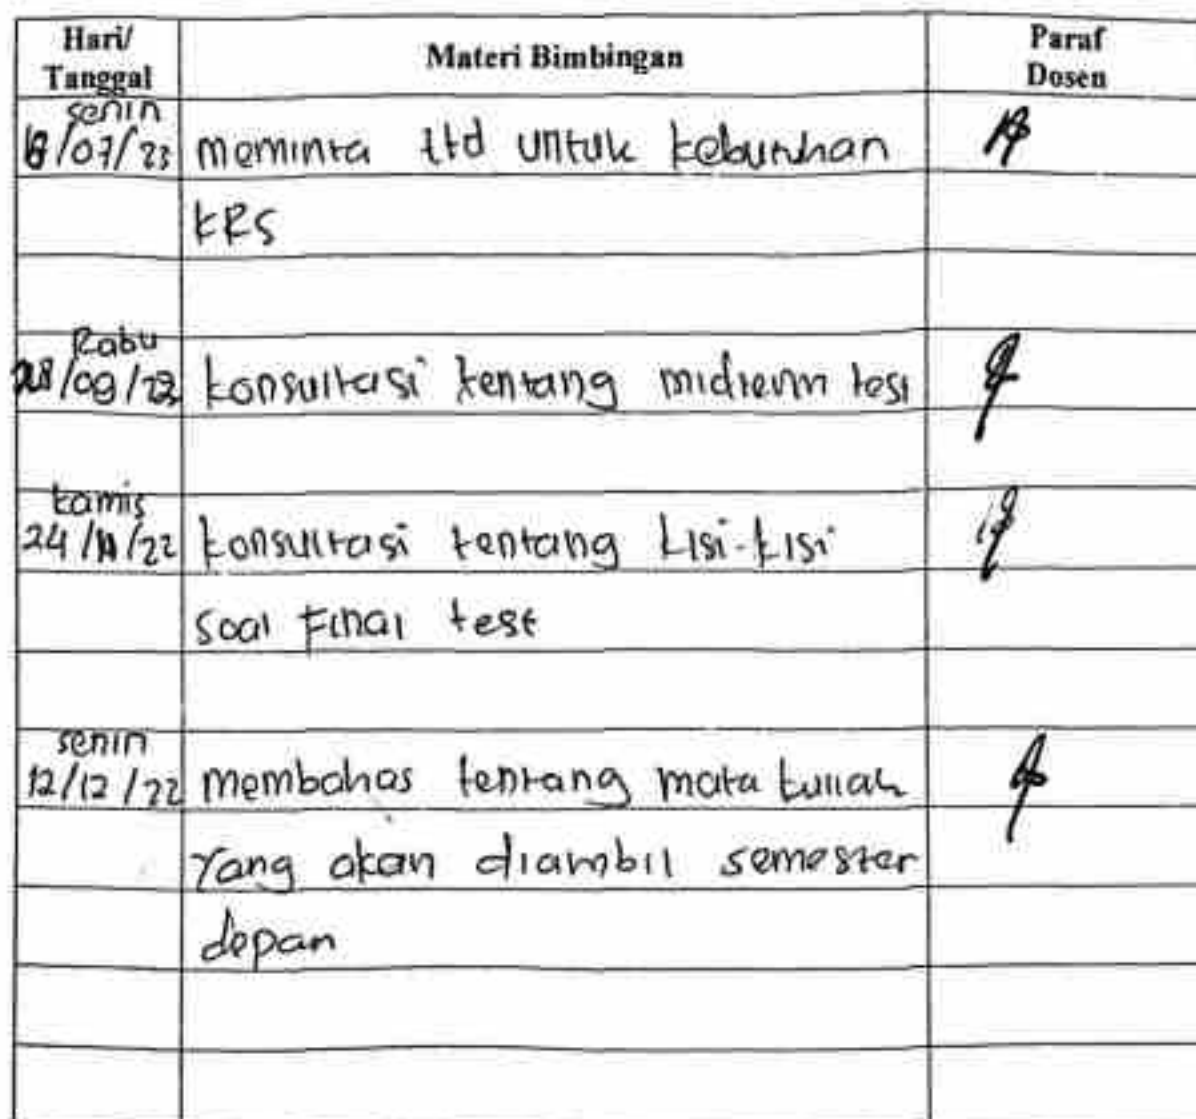 Hari/ Tanggal Materi Bimbingan Paraf Dosen
senin
18/07/23 meminta ttd untuk kebutuhan
KRS
Rabu
28/09/22 konsultasi tentang midterm test
kamis
24/11/22 konsultasi tentang kisi-kisi
soal Final test
senin
12/12/22 membahas tentang mata kuliah
Yang akan diambil semester
depan